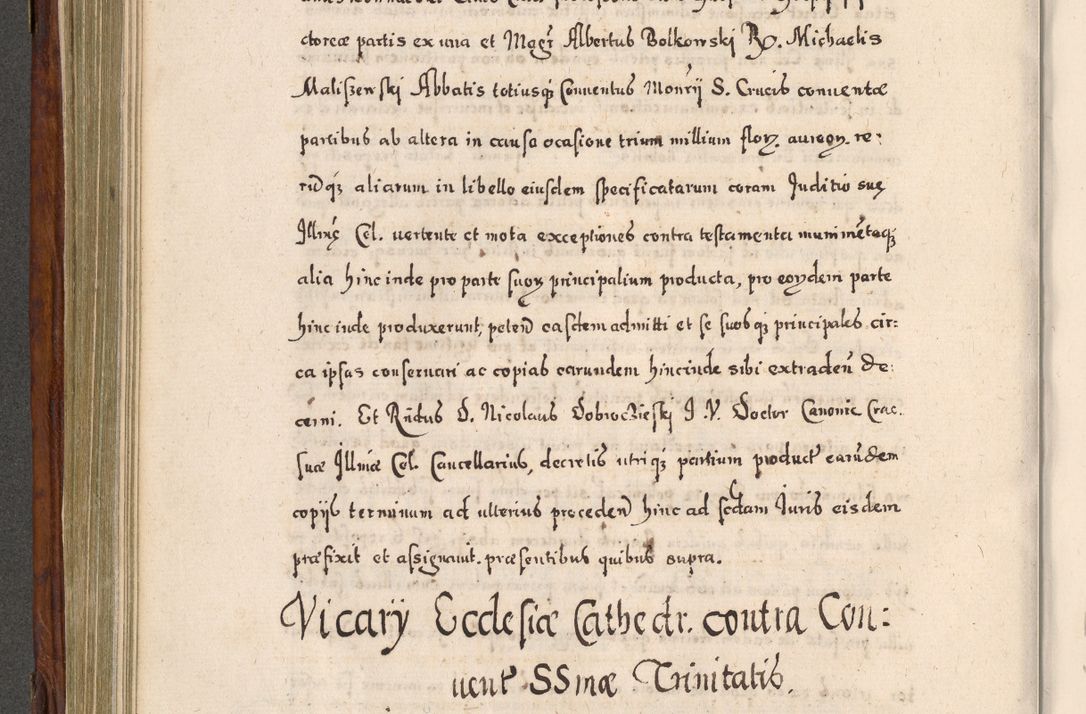 ctoreæ partis ex una et Magr Albertus Bolkowski Rx. Michaelis
Maliszewski Abbatis totiusq; Conventus Monrij S. Crucis conventæ
partibus ab altera in causa ocasione trium millium flor. aureor. re:
rūq; aliarum in libello eiusdem specificatarum coram Juditio suę
Illmę Cel. vertente et mota exceptiones contra testamenta munimētaq;
alia hinc inde pro parte suor principalium producta, pro eorydem parte
hinc inde produxerunt, peten̄ easdem admitti et se suosq; principales cir:
ca ipsas conservari ac copias earundem hincinde sibi extraden̄ de:
cerni. Et Rndus D. Nicolaus Dobrocieski I. V. Doctor Canonic Crac.
suæ Illmæ Cel. Cancellarius, decretis utriq; partium product earūdem
copijs terminum ad ulterius proceden̄ hinc ad scdam Iuris eisdem
præfixit et assignavit. præsentibus quibus supra.
Vicarij Ecclesiæ Cathedr. contra Con:
vent SSmæ Trinitatis.